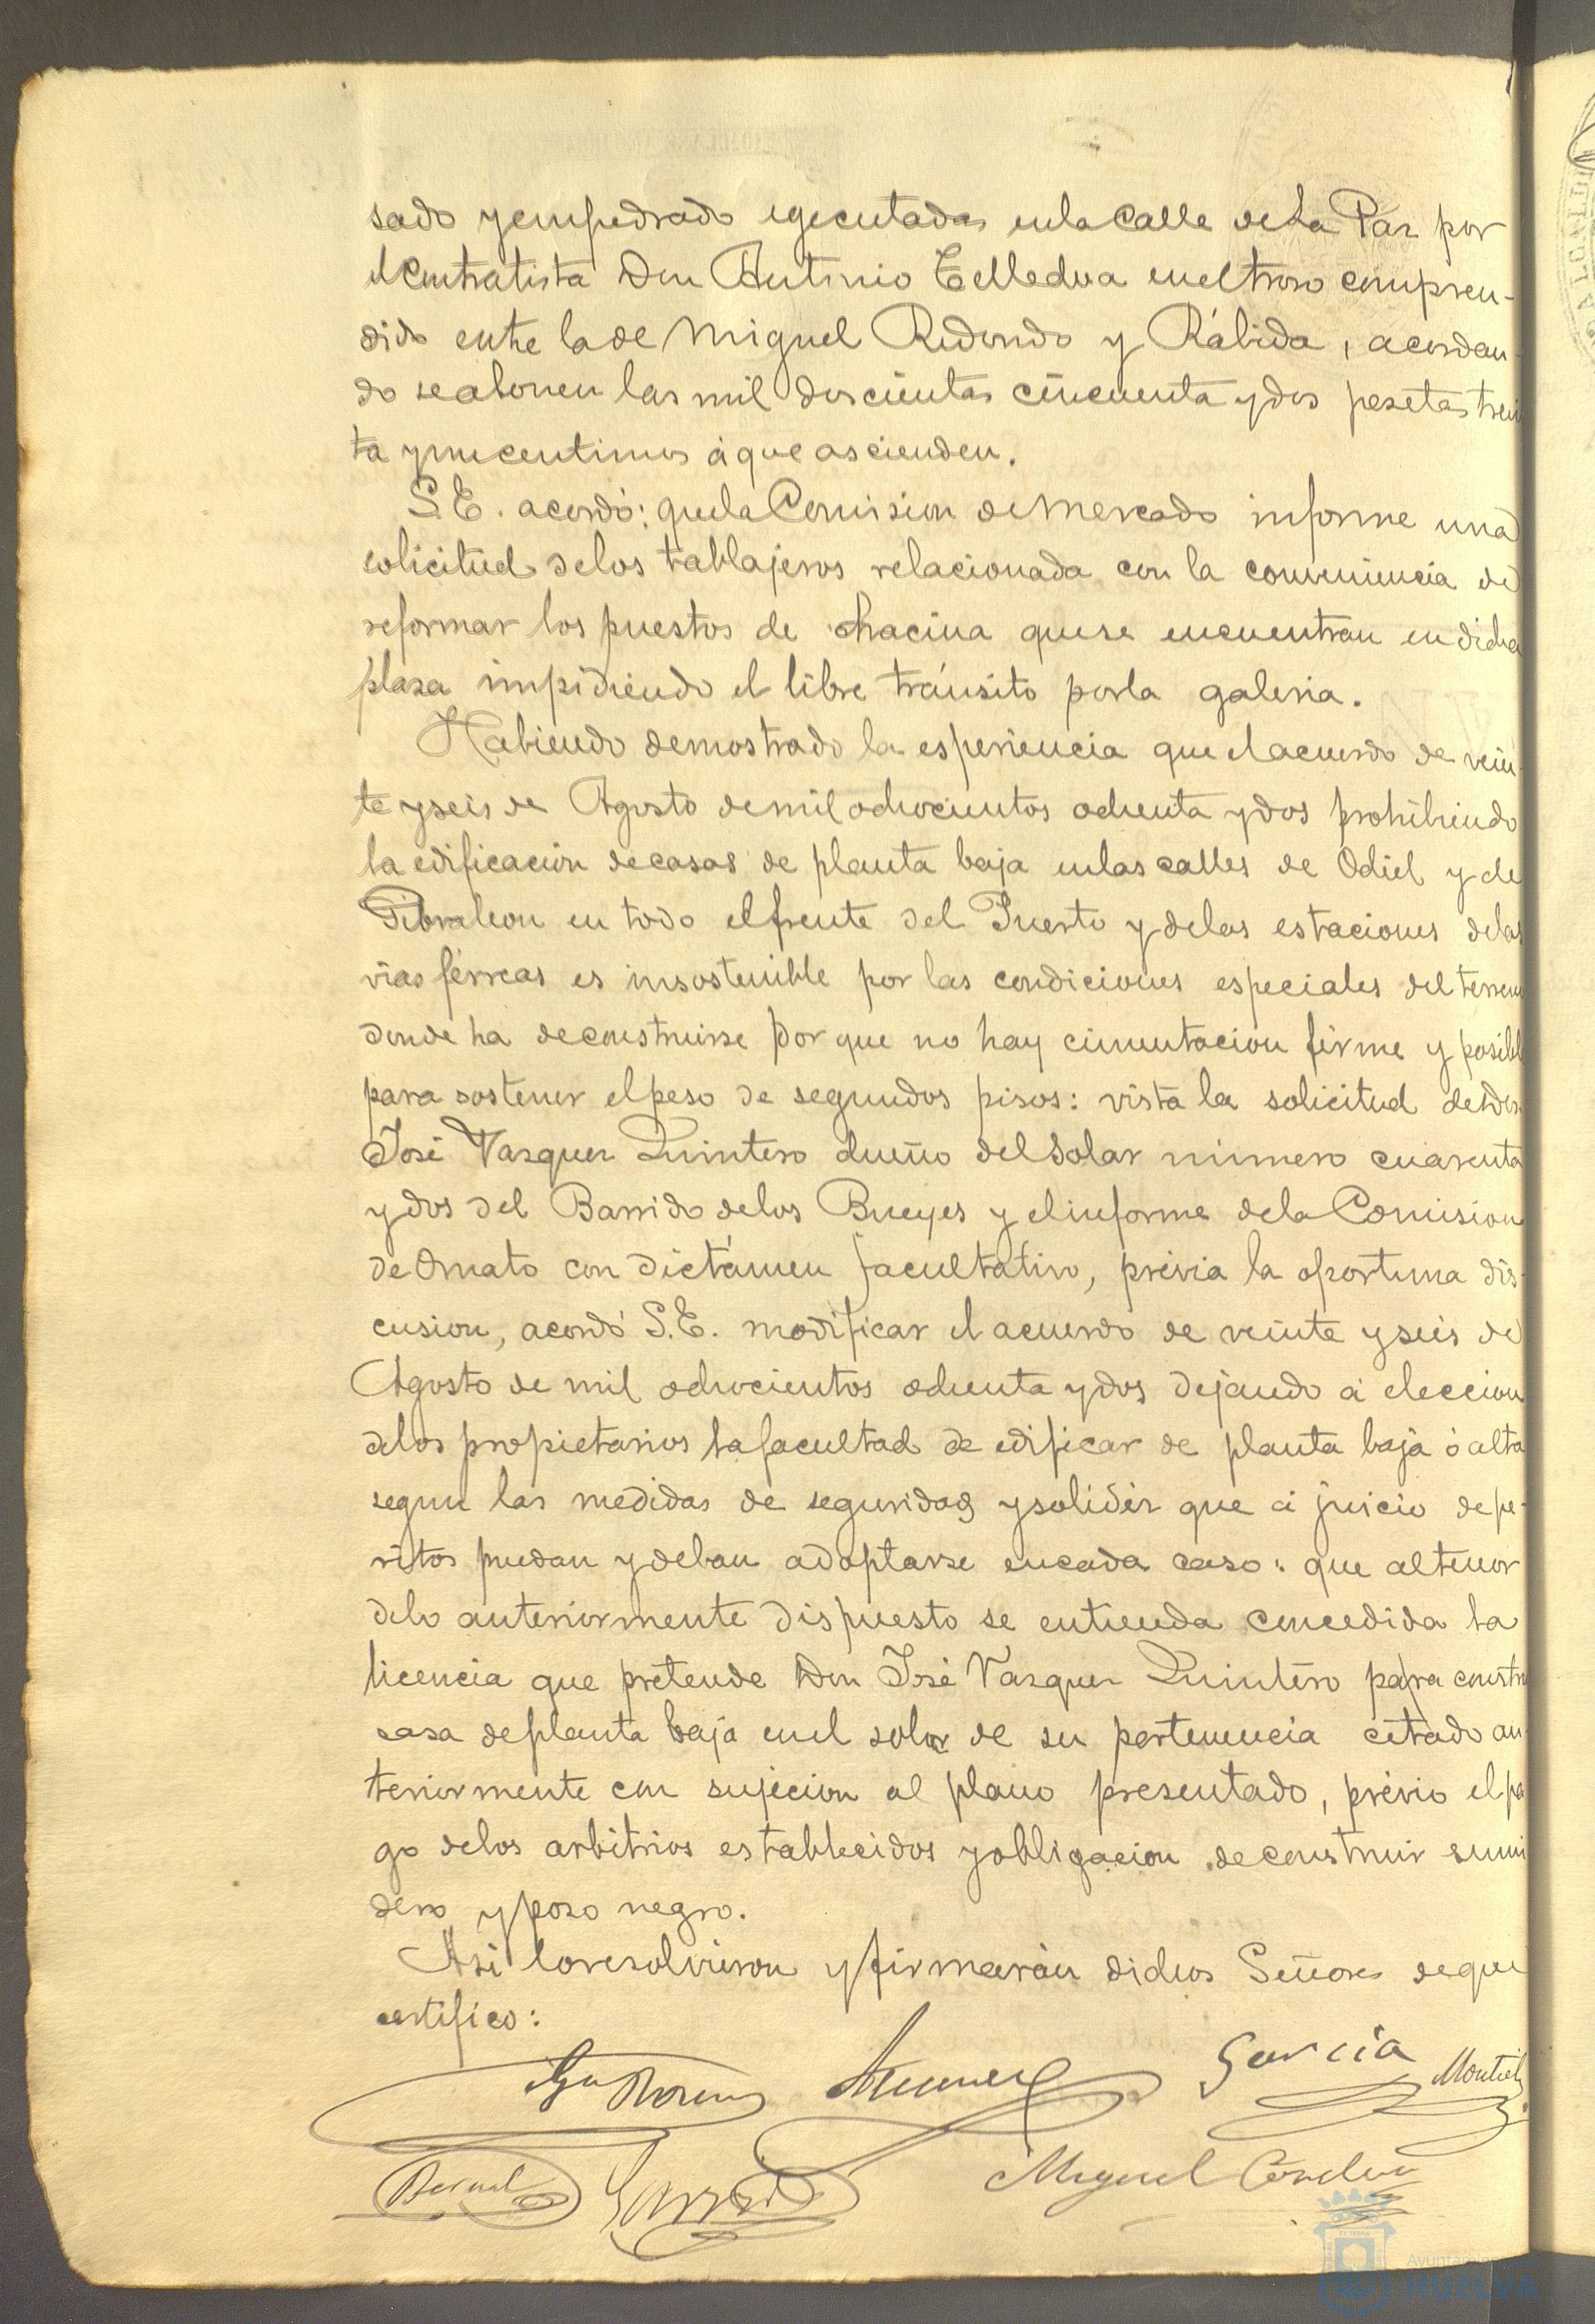 sado y empedrado egecutadas en la Calle de La Paz por
el Contratista Don Antonio Telledora en el troso compren-
dido entre la de Miguel Redondo y Rábida, acordan-
do se abonen las mil doscientas cincuenta y dos pesetas trein
ta y un centimos á que ascienden.
S.E. acordó: que la Comision de Mercado informe una
solicitud de los tablajeros relacionada con la conveniencia de
reformar los puestos de chacina que se encuentran en dicha
plasa impidiendo el libre tránsito por la galeria.
Habiendo demostrado la esperiencia que el acuerdo de vein-
te y seis de Agosto de mil ochocientos ochenta y dos prohibiendo
la edificación de casas de planta baja en las calles de Odiel y de
Gibraleon en todo el frente del Puerto y de las estaciones de las
vias férreas es insostenible por las condiciones especiales del terreno
donde ha de construirse por que no hay cimentacion firme y posibl
para sostener el peso de segundos pisos: vista la solicitud de Don
José Vazquez Quintero dueño del solar número cuarenta
y dos del Barrido de los Bueyes y el informe de la Comision
de Ornato con dictámen facultativo, prévia la oportuna dis-
cusion, acordó S.E. modificar el acuerdo de veinte y seis de
Agosto de mil ochocientos ochenta y dos dejando á eleccion
de los propietarios la facultad de edificar de planta baja ó alta
segun las medidas de seguridad y solidéz que á juicio de pe-
ritos puedan y deban adoptarse en cada caso: que al tenor
de lo anteriormente dispuesto se entienda concedida la
licencia que pretende Don José Vazquez Quintero para constru
casa de planta baja en el solar de su pertenencia citado an-
teriormente con sujecion al plano presentado, prévio el pa
go de los arbitrios establecidos y obligacion de construir sumi
dero y poso negro.
Asi lo resolvieron y firmarán dichos Señores de que
certifico:
García Montiel
Bernal Garrido Miguel
Ayuntamiento
HUELVA